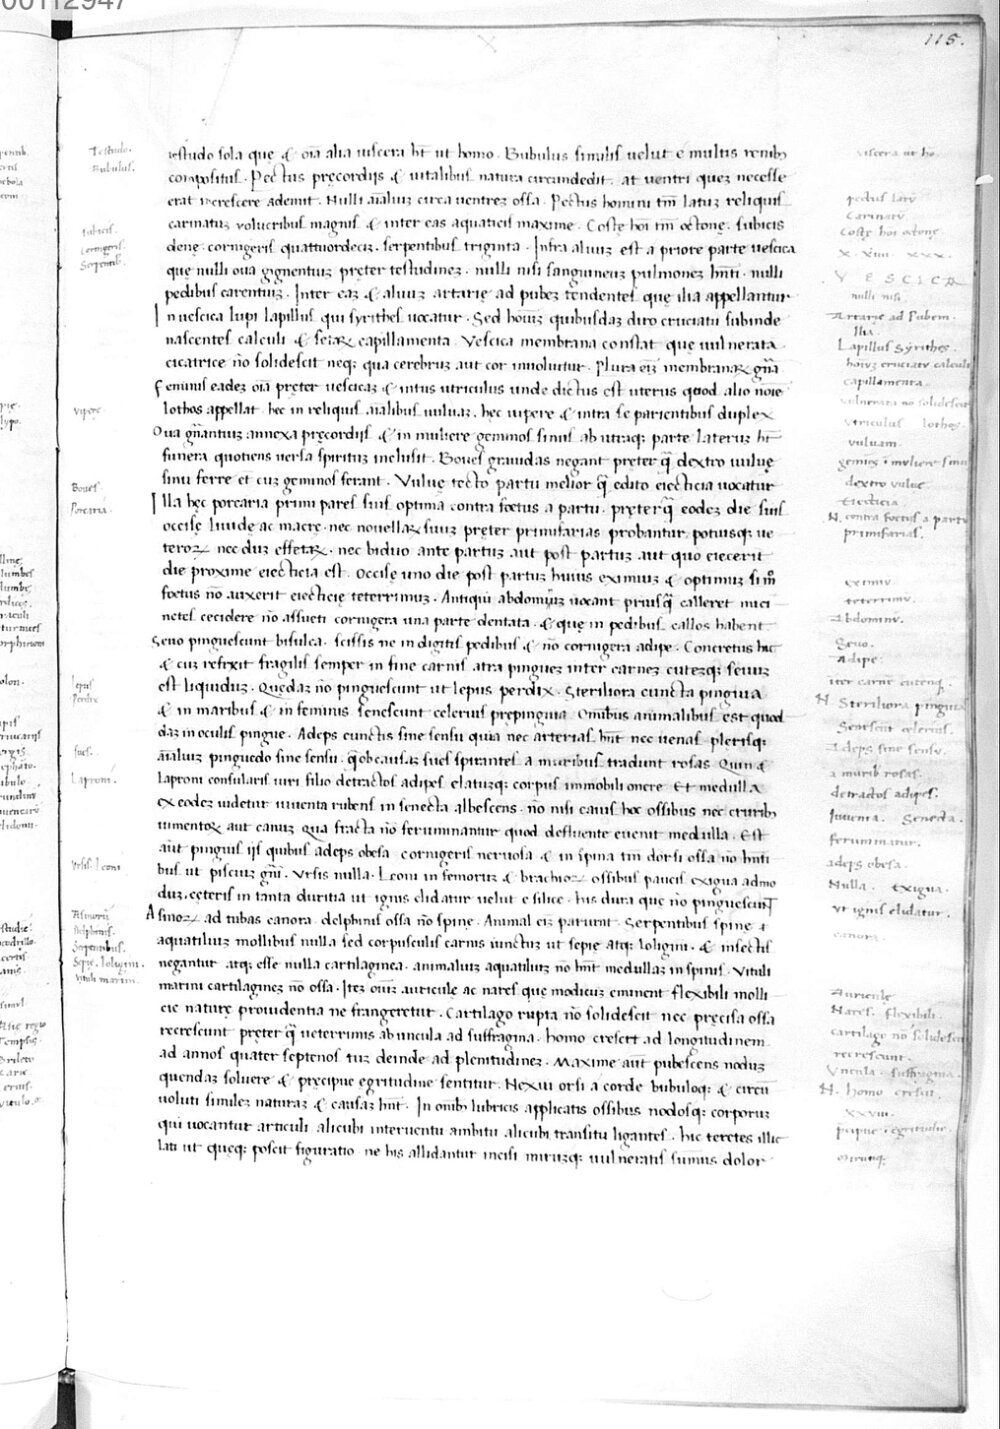 00112947
115.
testudo sola quę & oīa alia uiscera hīt ut homo. Bubulus similis uelut e multis renibȝ
compositus. Pectus pręcordijs & uitalibus natura circundedit. at uentri queȝ necesse
erat increscere ademit. Nulli aīaliuȝ circa uentreȝ ossa. Pectus homini tm̄ latuȝ reliquis
carinatuȝ uolucribus magnis & inter eas aquaticis maxime. Costę hoī tm̄ octonę. subicis
denę. cornigeris quattuordeciȝ. serpentibus triginta. Infra aluuȝ est a priore parte uescica
quę nulli oua gignentiuȝ pręter testudineȝ. nulli nisi sanguineuȝ pulmoneȝ hn̄ti. nulli
pedibus carentiuȝ. Inter eaȝ & aluuȝ artarię ad pubeȝ tendentes quę ilia appellantur
In uescica lupi lapillus qui syrithes uocatur. Sed hoīuȝ quibusdaȝ diro cruciatu subinde
nascentes calculi & setaꝝ capillamenta. Vescica membrana constat quę uulnerata
cicatrice nō solidescit neqȝ qua cerebruȝ aut cor inuoluitur. Plura eīȝ membranaꝝ gn̄a
Feminis eadeȝ oīa pręter uescicaȝ & intus utriculus unde dictus est uterus quod alio noīe
lothos appellat. hęc in reliquis aīalibus uuluaȝ. hęc uiperę & intra se parientibus duplex
Oua gn̄antiuȝ annexa pręcordijs & in muliere geminos sinus ab utraqȝ parte lateruȝ ht̄
funera quotiens uersa spiritus inclusit. Boues grauidas negant pręter q̄ dextro uuluę
sinu ferre et cuȝ geminos ferant. Vuluę tecto partu melior q̄ edito eiecticia uocatur
Illa hęc porcaria primi pares suis optima contra foetus a partu. pręterq̄ eodeȝ die suis
occisę liuide ac macrę. nec nouellaꝝ suuȝ pręter primifarias probantur. potiusqȝ ue
teroꝝ nec duȝ effetaꝝ. nec biduo ante partuȝ aut post partuȝ aut quo eiecerit
die proxime eiecticia est. occisę uno die post partuȝ huius eximiuȝ & optimuȝ si mō
foetus nō auxerit eiecticię teterrimuȝ. Antiqui abdomiuȝ uocant priusq̄ calleret inci
netes cecidere nō assueti cornigera una parte dentata. & quę in pedibus callos habent
Seuo pinguescunt bisulca. scissis ne in digitis pedibus & nō cornigera adipe. Concretus hic
& cuȝ refrixit fragilis semper in fine carnis atra pingueȝ inter carneȝ cuteȝqȝ seuuȝ
est liquiduȝ. Quędaȝ nō pinguescunt ut lepus perdix. Steriliora cuncta pinguia
& in maribus & in feminis senescunt celerius prępinguia. Omībus animalibus est quod
daȝ in oculis pingue. Adeps cunctis sine sensu quia nec arterias hn̄t nec uenas plerisqȝ
aīaliuȝ pinguedo sine sensu. q̄ obcausaȝ sues spirantes a muribus tradunt rosas Quin &
laproni consularis uiri filio detractos adipes elatuȝqȝ corpus immobili onere Et medulla
ex eodeȝ uidetur iuuenta rubens in senecta albescens. nō nisi cauis hoc ossibus nec cruribȝ
iumentoꝝ aut canuȝ qua fracta nō feruminantur quod defluente euenit medulla. Est
aūt pinguis ijs quibus adeps obesa cornigeris neruosa & in spina tm̄ dorsi ossa nō hn̄ti
bus ut pisciuȝ gn̄i. Vrsis nulla. Leoni in femoruȝ & brachioꝝ ossibus paucis exigua admo
duȝ. cęteris in tanta duritia ut ignis elidatur uelut e silice. his dura quę nō pinguescunt
Asinoꝝ ad tubas canora. delphinis ossa nō spinę. Animal eīȝ pariunt. Serpentibus spinę &
aquatiliuȝ mollibus nulla sed corpusculis carnis iunctuȝ ut sepię atqȝ loligini. & insectis
negantur atqȝ esse nulla cartilaginea. animaliuȝ aquatiliuȝ nō hn̄t medullaȝ in spinis. Vituli
marini cartilagineȝ nō ossa. Iteȝ oīuȝ auriculę ac nares quę modicuȝ eminent flexibili molli
cie naturę prouidentia ne frangeretur. Cartilago rupta nō solidescit nec pręcisa ossa
recrescunt pręter q̄ ueterrimis ab uncula ad suffragina. homo crescit ad longitudinem
ad annos quater septenos tuȝ deinde ad plenitudineȝ. Maxime aūt pubescens noduȝ
quendaȝ soluere & pręcipue egritudine sentitur. Nexui orsi a corde bubuloqȝ & circū
uoluti similes naturaȝ & causaȝ hn̄t. In omībȝ lubricis applicatis ossibus nodosqȝ corporuȝ
qui uocantur articuli alicubi interuentu ambitu alicubi transitu ligantes. hic teretes illic
lati ut quęqȝ poscit figuratio ne his allidantur incisi miruȝqȝ uulneratis summus dolor
Testudo.
Bubulus.
subicis.
cornigeris.
Serpentib.
vipere
Boues.
Porcaria.
lepus
Perdix
sues.
Laproni.
Vrsis. Leoni
Asinorū
Delphinis.
Serpentibus.
Sepię. loligini.
vituli marini.
viscera ut ho.
pectus latū
Carinatū
Costę hoī octonę.
X. XIIII. XXX.
VESCICA
nulli nisi
Artarię ad Pubem.
Ilia.
Lapillus Syrithes.
hoīuȝ cruciatū calculi
capillamenta.
vulnerata nō solidescit
vtriculus lothos.
vuluam.
geminos ī muliere sinus
dextro uuluę
Eiecticia
N. contra foetus a partu
primifarias.
eximiū.
teterrimū.
Abdominū.
Seuo.
Adipe.
iter carnē cutemqȝ.
N. Steriliora pinguia
Senescūt celerius.
Adeps sine sensu.
a muribȝ rosas.
detractos adipes.
Iuuenta. Senecta.
feruminatur.
adeps obesa.
Nulla. Exigua.
vt ignis elidatur.
canora.
Auriculę
Nares. flexibili.
cartilago nō solidescit
recrescunt.
Vncula. suffragina.
N. homo crescit.
XXVIII.
pcipue egritudine.
mirunqȝ